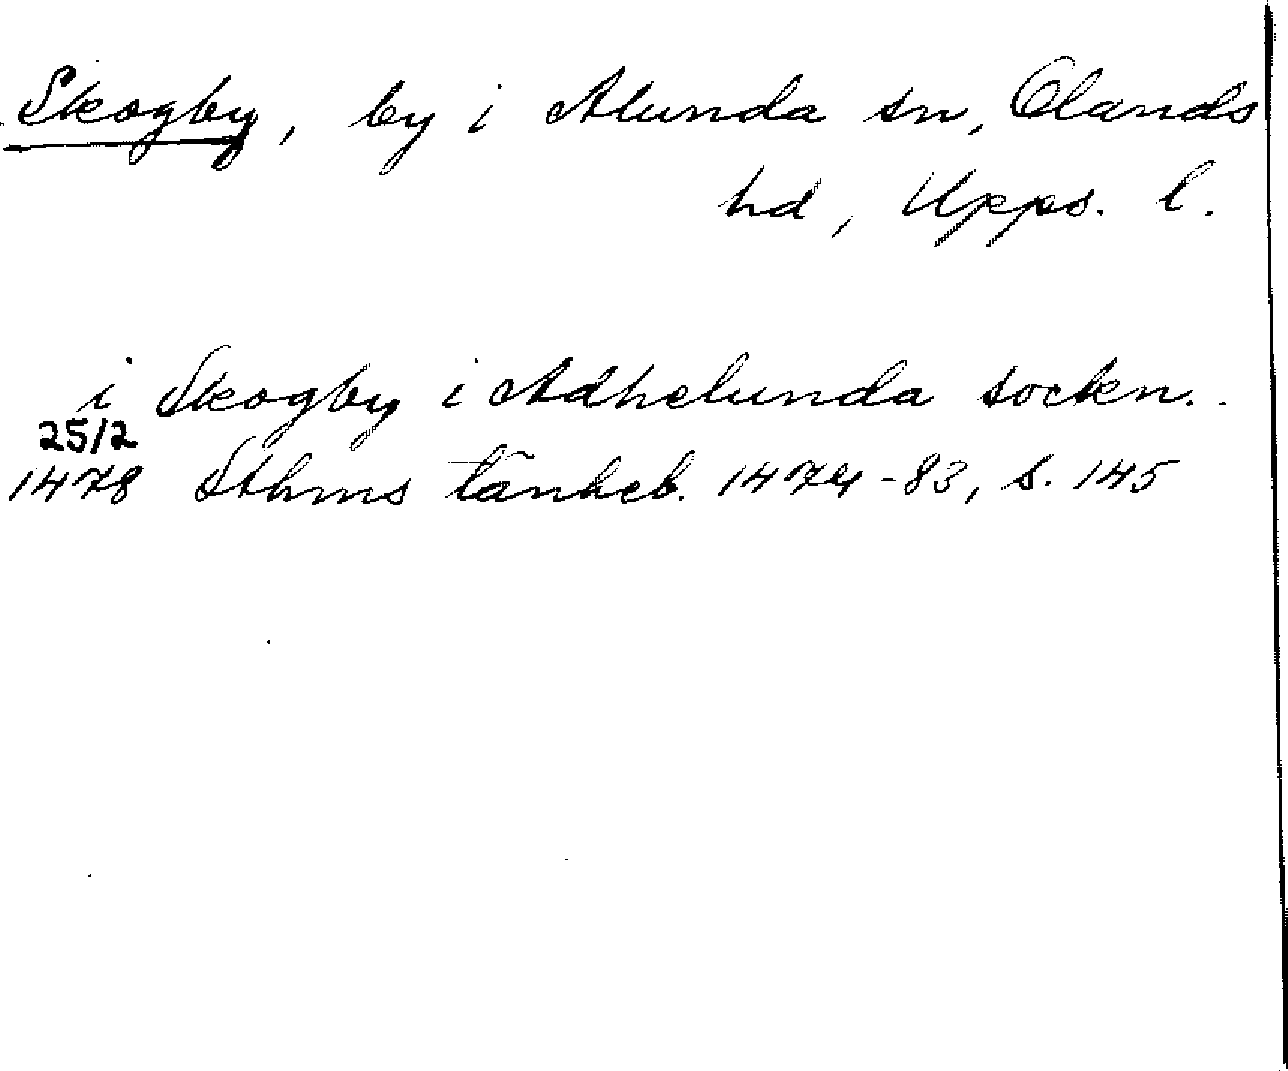 Skogby, by i Alunda sn, Olands
hd, Upps. l.
i Skogby i Adhelunda sockn.
25/2
1478 Sthms tänkeb. 1474-83, s. 145